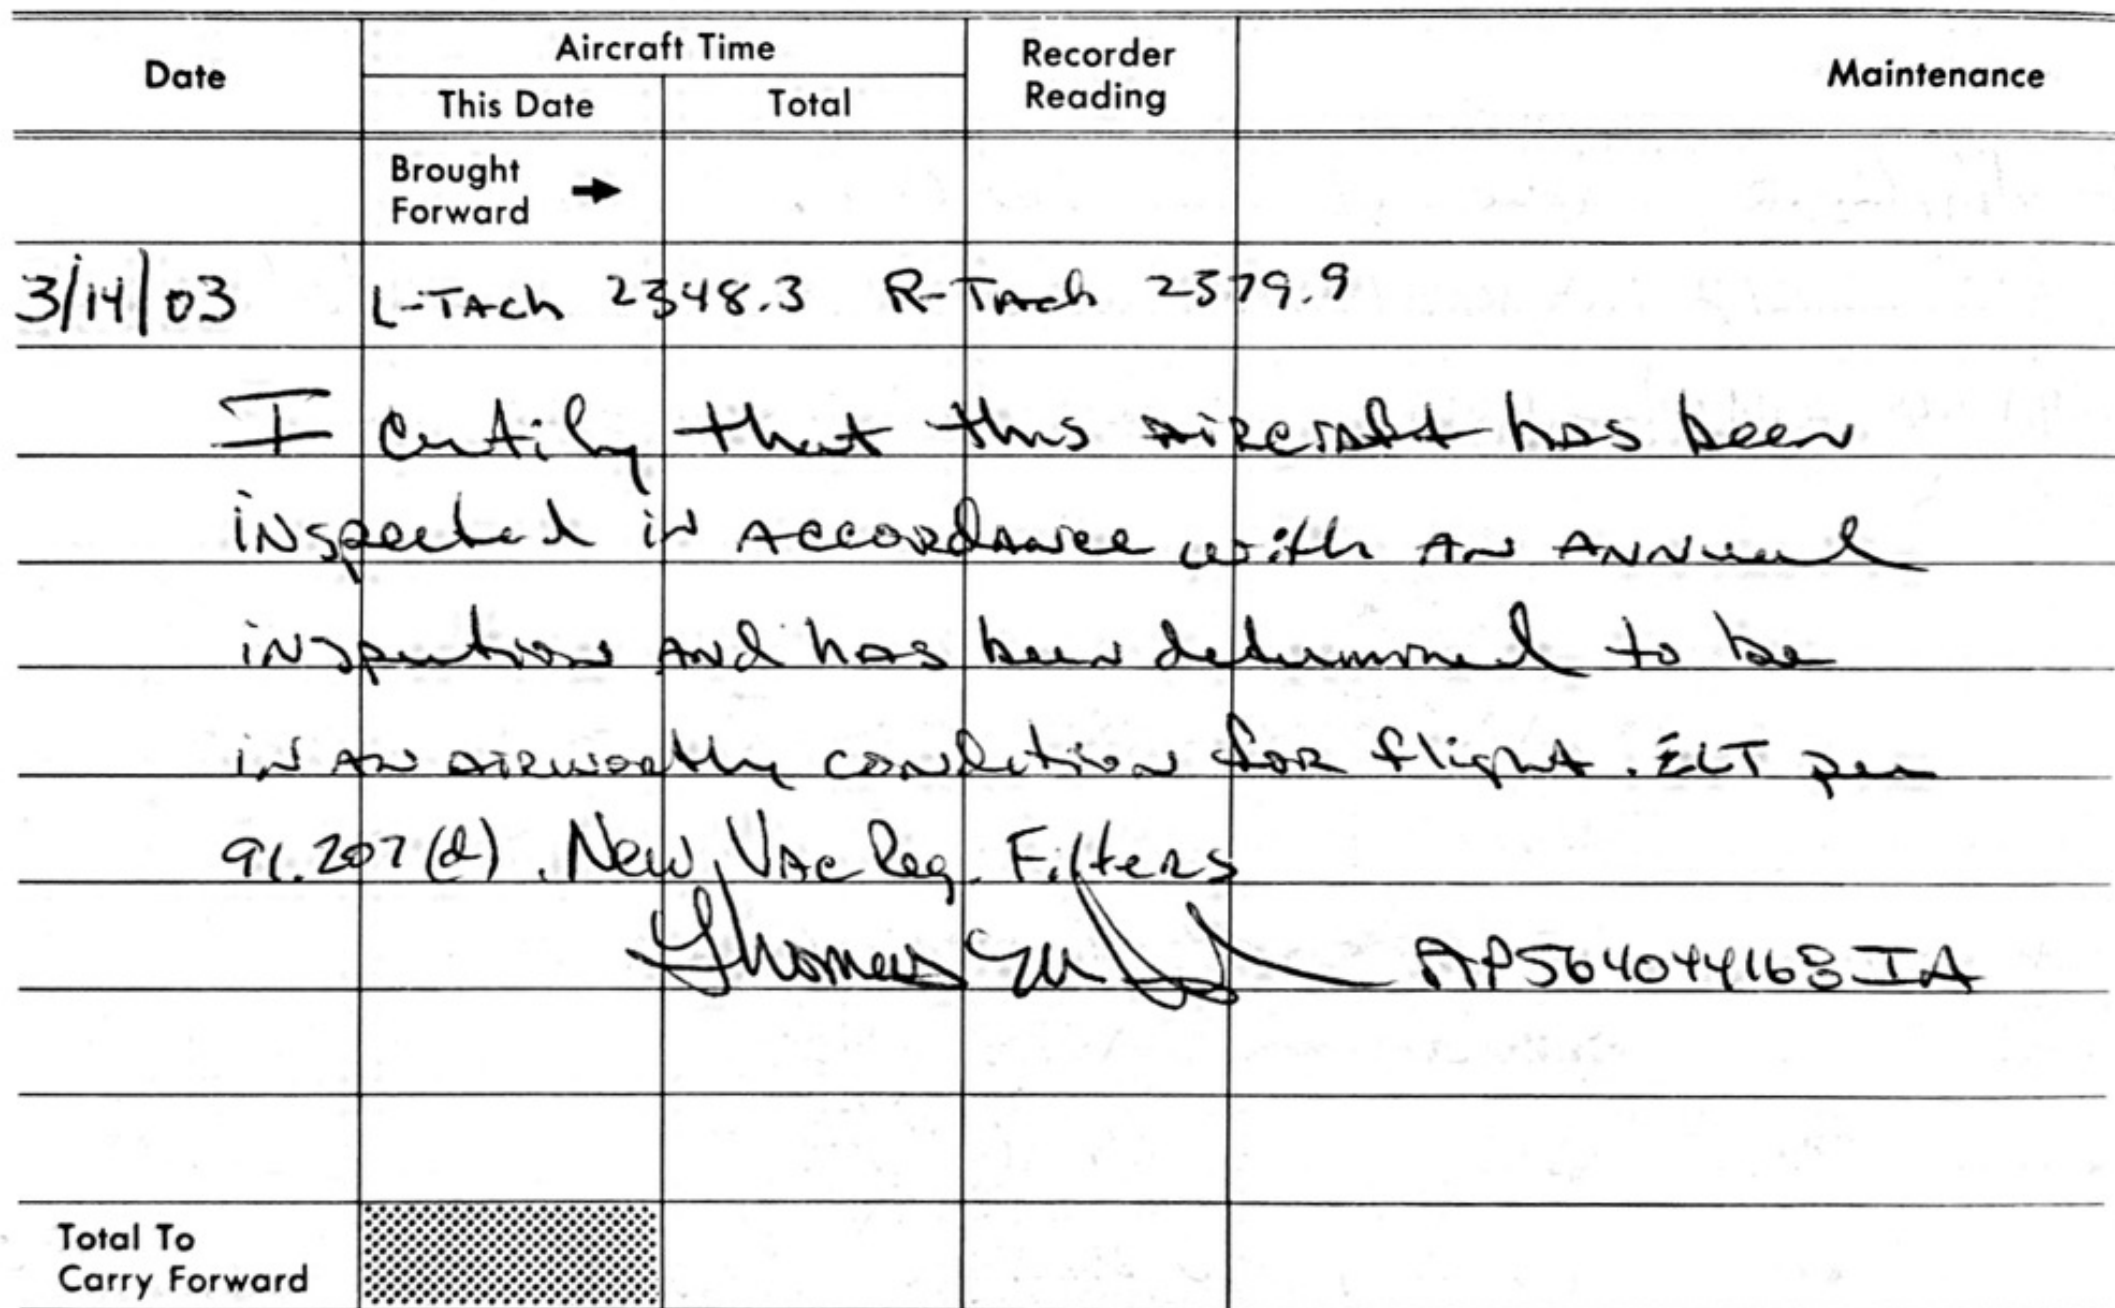 Date
Aircraft Time
This Date
Total
Recorder
Reading
Maintenance
Brought
Forward
3/14/03 L-Tach 2348.3 R-Tach 2379.9
I certify that this aircraft has been
inspected in accordance with an annual
inspection and has been determined to be
in an airworthy condition for flight. ELT per
91.207(d). New Vac Reg. Filters
Thomas AP564044168IA
Total To
Carry Forward